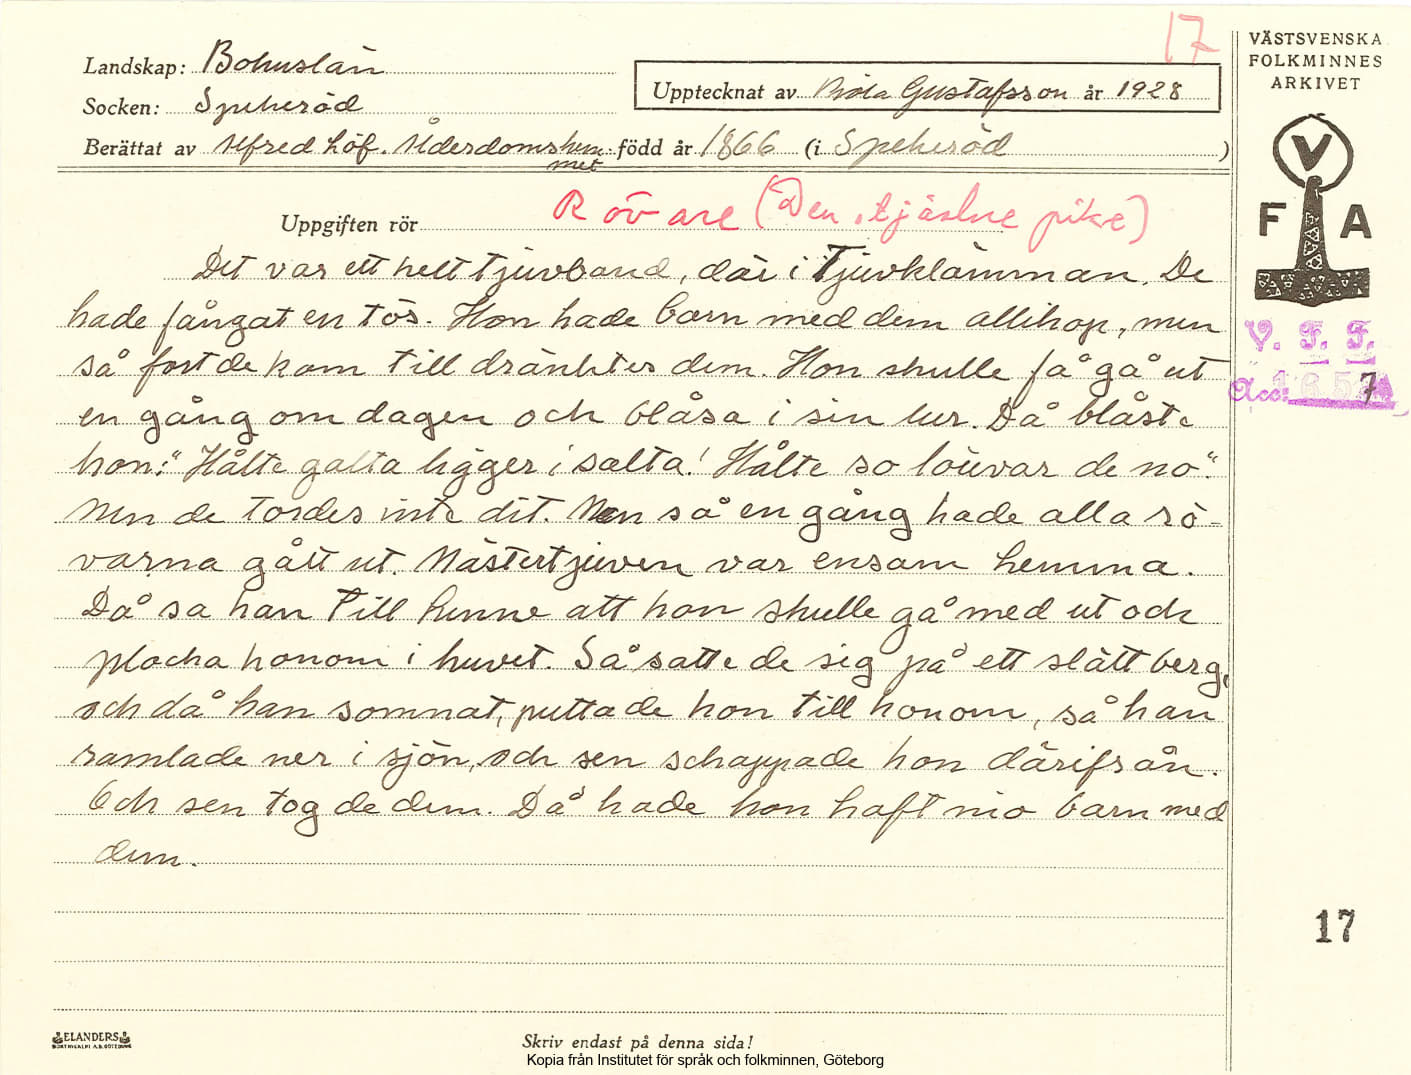 17
Landskap: Bohuslän
Socken: Spekeröd
Upptecknat av Gustafsson år 1928
Berättat av Alfred Löf. Ålderdomshem-
met
född år 1866 (i Spekeröd)
Uppgiften rör Rövare (Den pike)
Det var ett helt tjuvband, där i Tjuvklämman. De
hade fångat en tös. Hon hade barn med dem allihop, men
så fort de kom till dränktes dem. Hon skulle få gå ut
en gång om dagen och blåsa i sin lur. Då blåste
hon: "Hålte galta ligger i salta! Hålte so louvar de no".
Men de tordes inte dit. Men så en gång hade alla rö-
varna gått ut. Mästertjuven var ensam hemma.
Då sa han till henne att hon skulle gå med ut och
plocka honom i huvet. Så satte de sig på ett slätt berg,
och då han somnat, puttade hon till honom, så han
ramlade ner i sjön, och sen schappade hon därifrån.
Och sen tog de dem. Då hade hon haft nio barn med
dem.
VÄSTSVENSKA
FOLKMINNES
ARKIVET
V
F A
V. F. F.
Acc:
17
ELANDERS
Skriv endast på denna sida!
Kopia från Institutet för språk och folkminnen, Göteborg